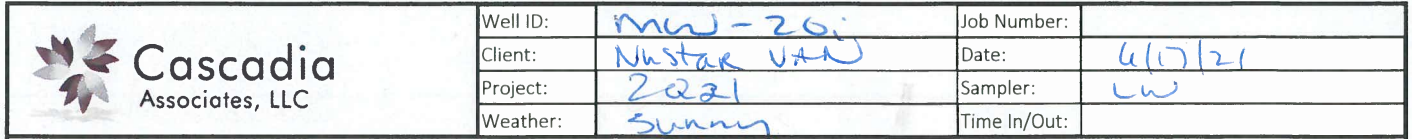 Cascadia
Associates, LLC
Well ID: MW-20i Job Number:
Client: NuStar VAN Date: 6/17/21
Project: 2Q21 Sampler: LW
Weather: Sunny Time In/Out: